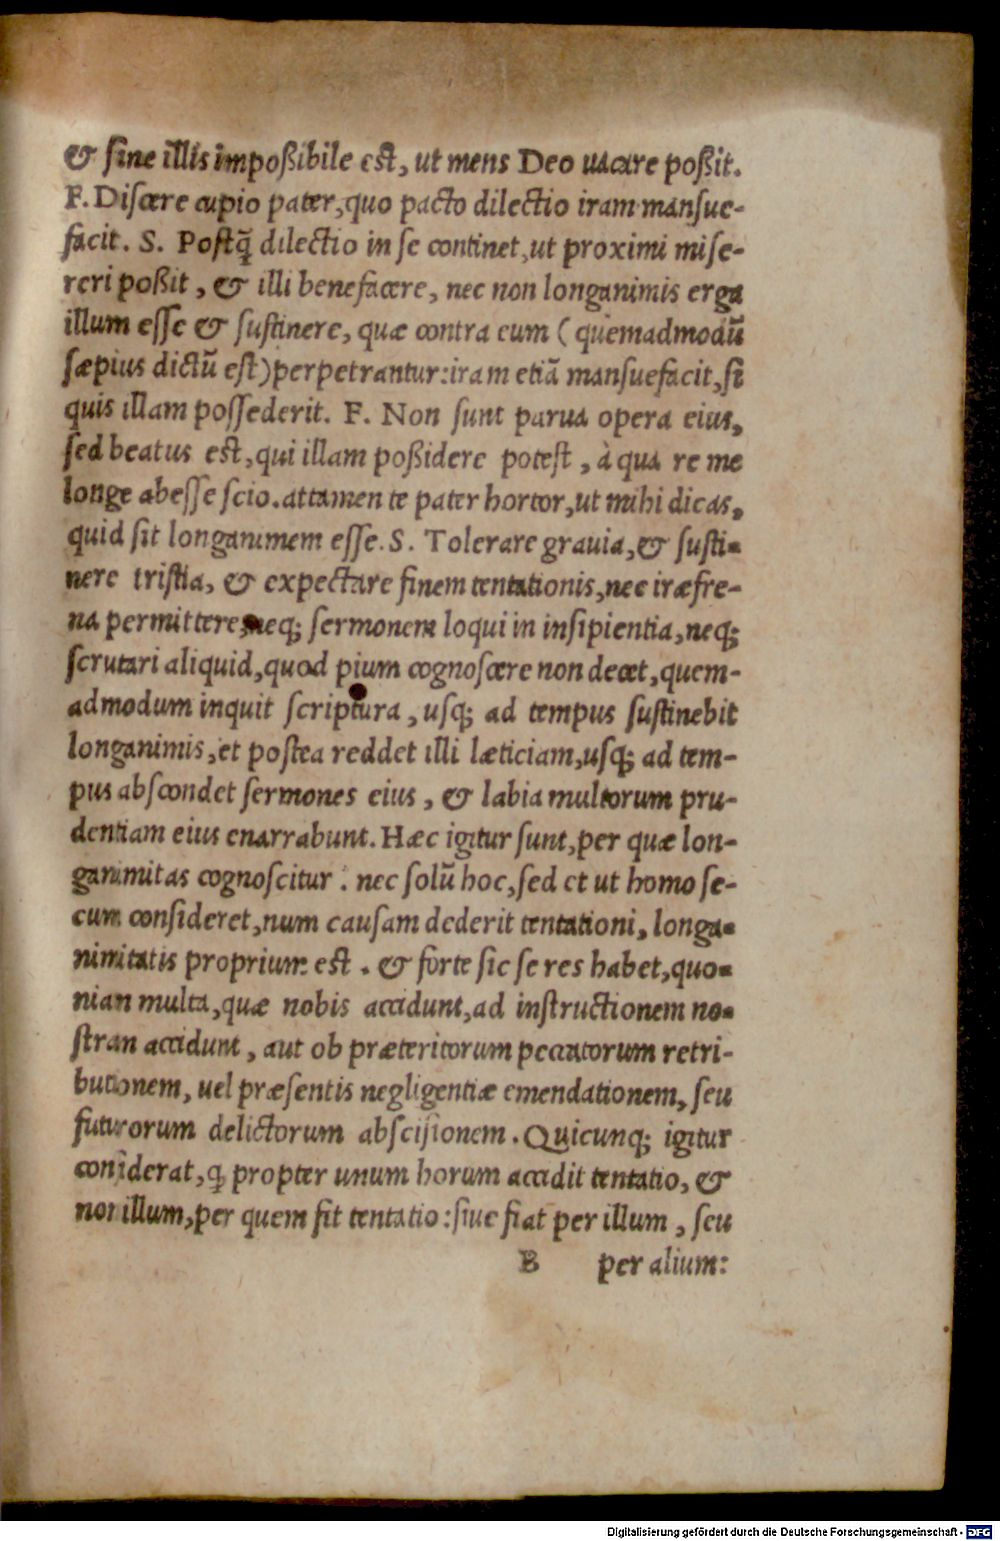 & sine illis impoßibile est, ut mens Deo uacare poßit.
F. Discere cupio pater, quo pacto dilectio iram mansue-
facit. S. Postq̃ dilectio in se continet, ut proximi mise-
reri poßit, & illi benefacere, nec non longanimis erga
illum esse & sustinere, quæ contra eum (quemadmodũ
sæpius dictũ est) perpetrantur: iram etiã mansuefacit, si
quis illam possederit. F. Non sunt parua opera eius,
sed beatus est, qui illam poßidere potest, à qua re me
longe abesse scio. attamen te pater hortor, ut mihi dicas,
quid sit longanimem esse. S. Tolerare grauia, & susti-
nere tristia, & expectare finem tentationis, nec iræ fre-
na permittere, neq; sermonem loqui in insipientia, neq;
scrutari aliquid, quod pium cognoscere non decet, quem-
admodum inquit scriptura, usq; ad tempus sustinebit
longanimis, et postea reddet illi læticiam, usq; ad tem-
pus abscondet sermones eius, & labia multorum pru-
dentiam eius enarrabunt. Hæc igitur sunt, per quæ lon-
ganimitas cognoscitur. nec solũ hoc, sed et ut homo se-
cum consideret, num causam dederit tentationi, longa-
nimitatis proprium est. & forte sic se res habet, quo-
niam multa, quæ nobis accidunt, ad instructionem no-
stram accidunt, aut ob præteritorum peccatorum retri-
butionem, uel præsentis negligentiæ emendationem, seu
futurorum delictorum abscisionem. Quicunq; igitur
considerat, q̃ propter unum horum accidit tentatio, &
non illum, per quem fit tentatio: siue fiat per illum, seu
B per alium:
Digitalisierung gefördert durch die Deutsche Forschungsgemeinschaft - DFG